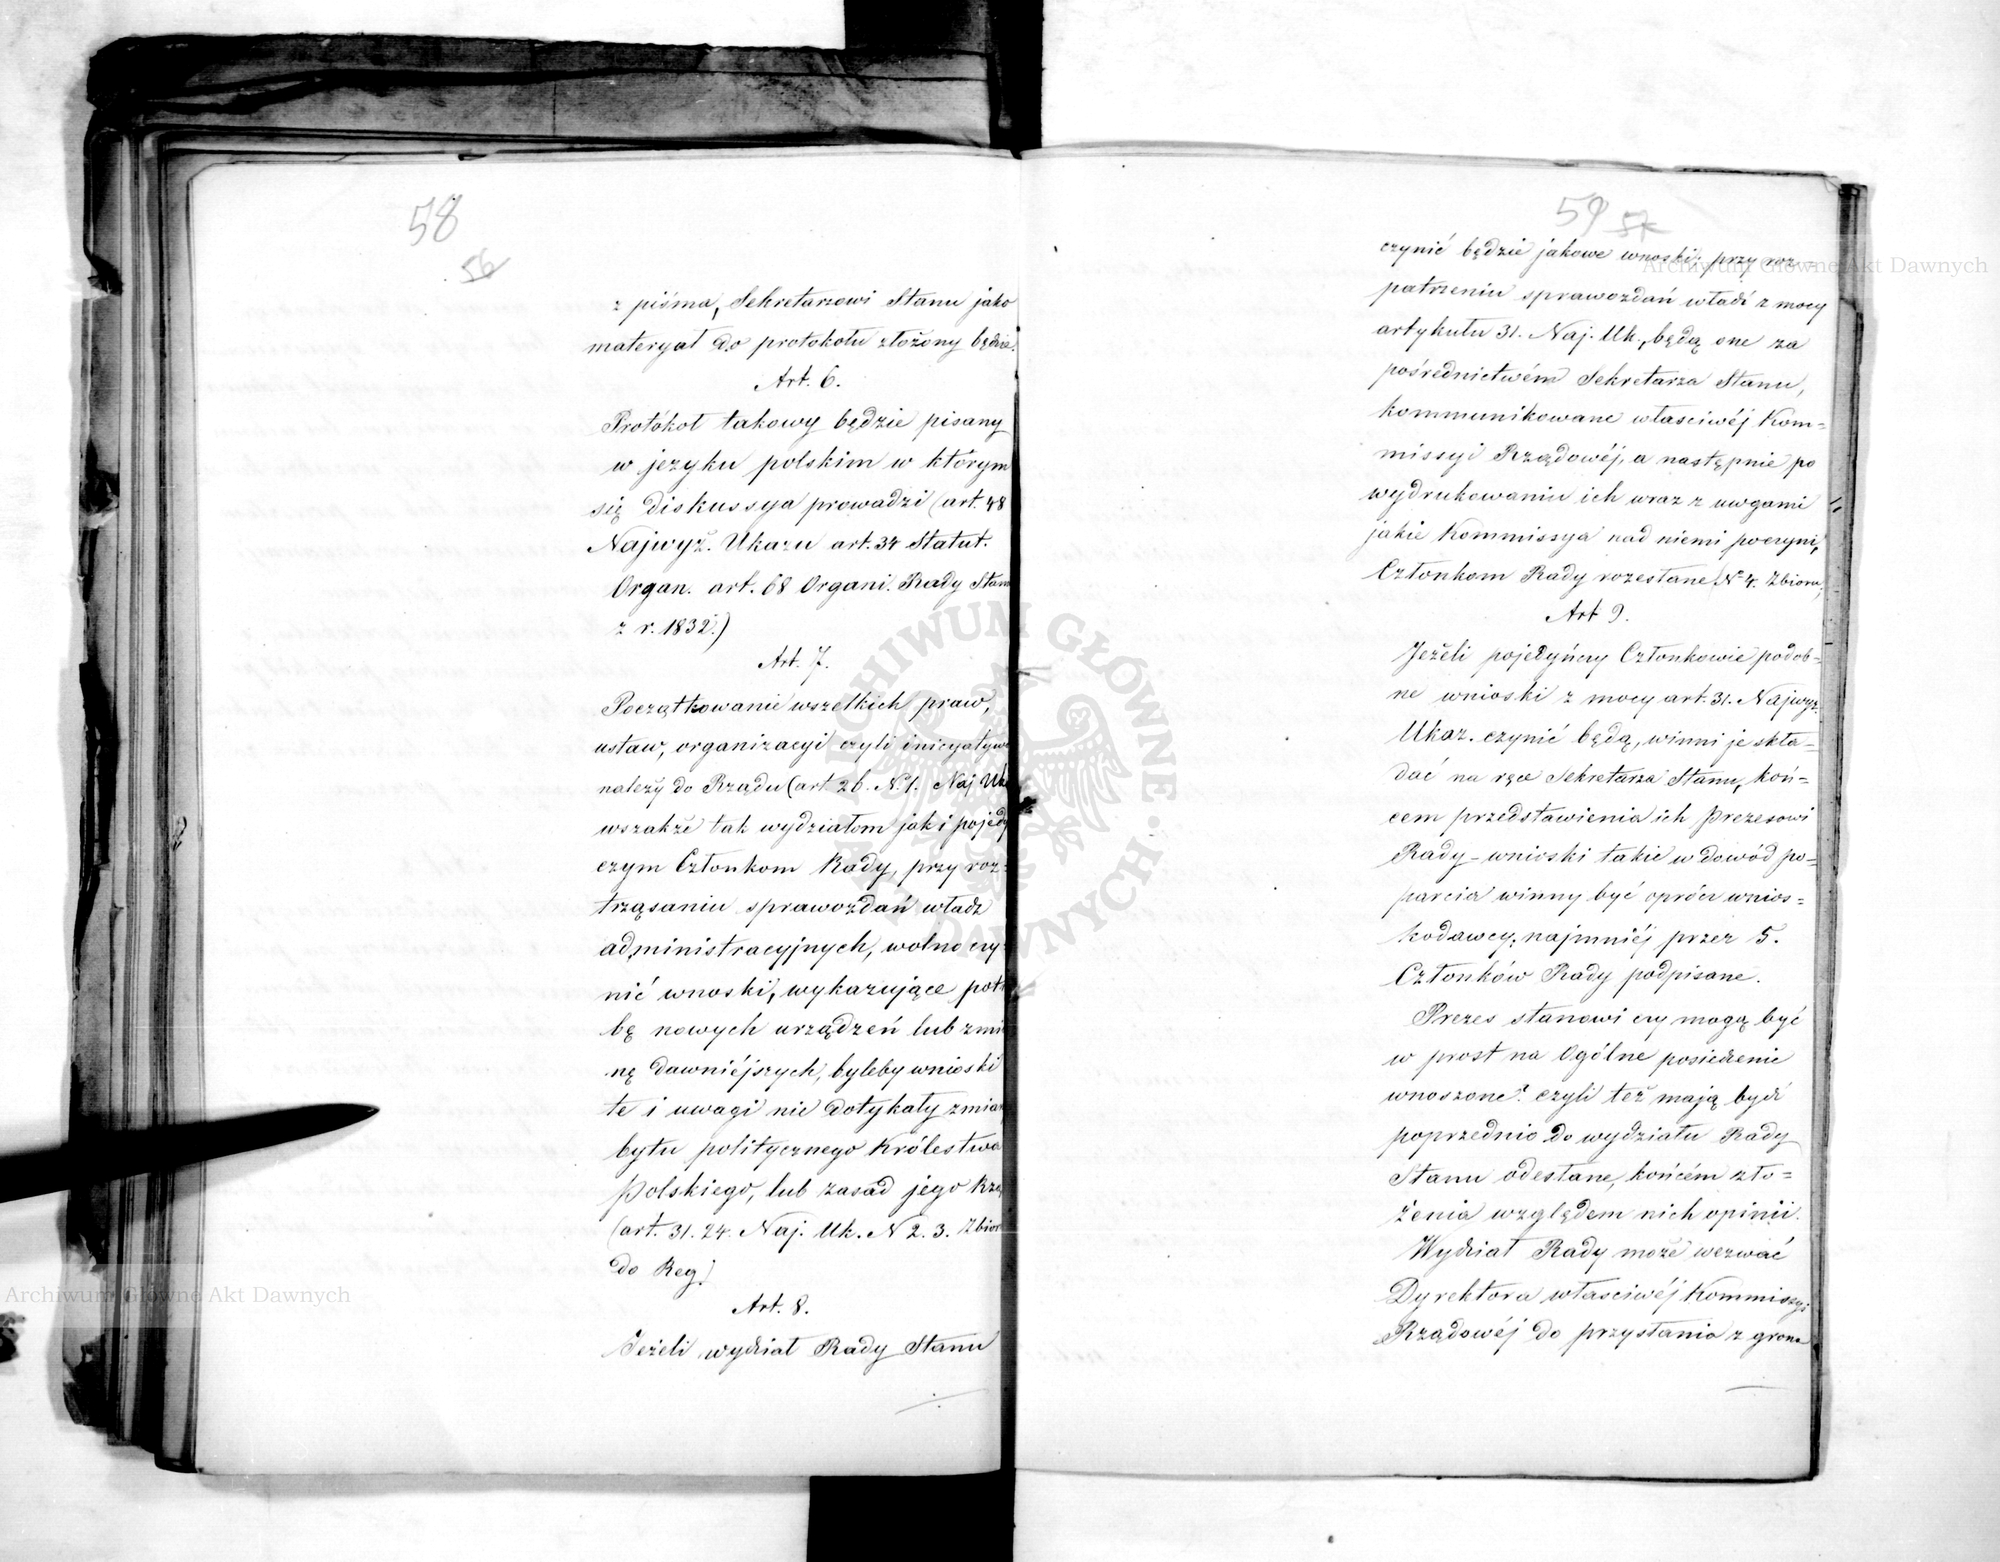 58
56
z piśma, Sekretarzowi Stanu jako
materyał do protokołu złożony będzie.
Art. 6.
Protókoł takowy będzie pisany
w języku polskim w którym
się diskussya prowadzi (art. 48
Najwyż. Ukazu art. 34 Statut.
Organ. art. 68 Organi. Rady Stanu
z r. 1832.)
Art. 7.
Początkowanie wszelkich praw,
ustaw, organizacyi czyli inicyatywa
należy do Rządu (art 26. N. 1. Naj Uka
wszakże tak wydziałom jak i pojedy
czym Członkom Rady, przy roz-
trząsaniu sprawozdań władz
administracyjnych, wolno czy-
nić wnoski, wykazujące potr
bę nowych urządzeń lub zmi
nę dawniéjszych, byleby wnioski
te i uwagi nie dotykały zmian
bytu politycznego Królestwa
Polskiego, lub zasad jego Rzą
(art. 31. 24. Naj. Uk. N 2. 3. Zbior
do Reg)
Art. 8.
Jeżeli wydział Rady Stanu
59 57
czynić będzie jakowe wnoski; przy roz-
patrzeniu sprawozdań władź z mocy
artykułu 31. Naj. Uk., będą one za
pośrednictwém Sekretarza Stanu,
kommunikowane właściwéj Kom=
missyi Rządowéj, a następnie po
wydrukowaniu ich wraz z uwgami
jakie Kommissya nad niemi poczyni,
Członkom Rady rozesłane (N 4. Zbioru;
Art 9.
Jeżeli pojedyńczy Członkowie podob-
ne wnioski z mocy art. 31. Najwyż.
Ukaz. czynić będą, winni je skła-
dać na ręce Sekretarza Stanu, koń-
cem przedstawienia ich Prezesowi
Rady - wnioski takie w dowód po-
parcia winny być oprócz wnios=
kodawcy; najmniéj przez 5.
Członków Rady podpisane.
Prezes stanowi czy mogą być
w prost na Ogólne posiedzenie
wnoszone? czyli też mają bydź
poprzednio do wydziału Rady
Stanu odesłane, końcém zło=
żenia względem nich opinii.
Wydział Rady może wezwać
Dyrektora właściwéj Kommissyi
Rządowéj do przysłania z grona
Archiwum Główne Akt Dawnych
Archiwum Główne Akt Dawnych
ARCHIWUM GŁÓWNE AKT DAWNYCH